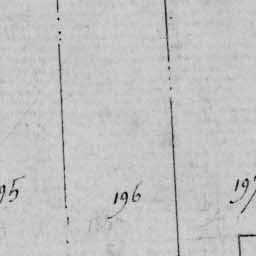 95 196 197